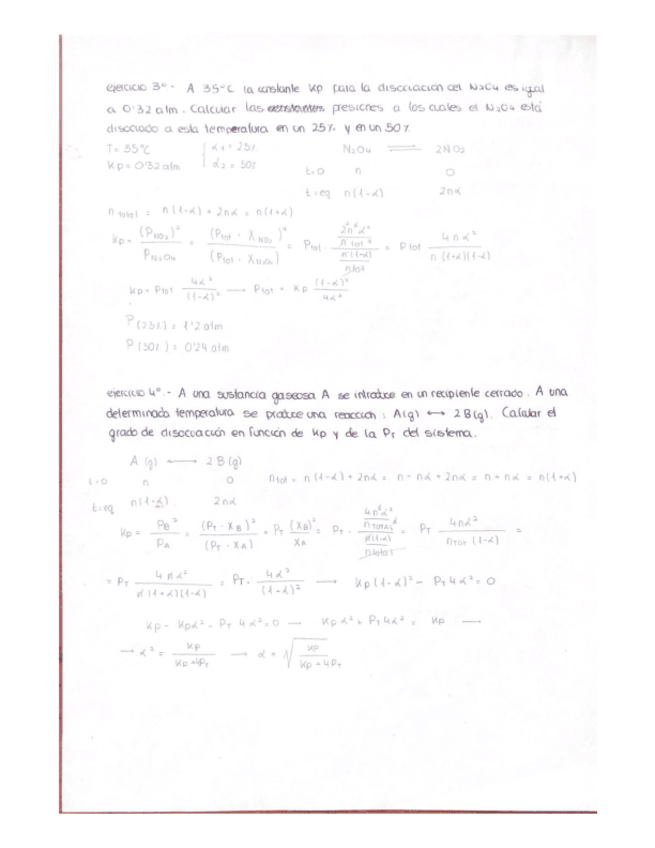 ejercicio 3º.- A 35ºC la constante Kp para la disociación del N2O4 es igual
a 0'32 atm. Calcular las presiones a las cuales el N2O4 está
disociado a esta temperatura en un 25% y en un 50%
T= 35ºC { α1 = 25% N2O4 ⇌ 2NO2
Kp = 0'32 atm { α2 = 50% t=0 n 0
t=eq n(1-α) 2nα
n total = n(1-α) + 2nα = n(1+α)
Kp = (PNO2)² / PN2O4 = (Ptot · XNO2)² / (Ptot · XN2O4) = Ptot · = Ptot 4nα² / n(1+α)(1-α)
Kp = Ptot 4α² / (1-α)² → Ptot = Kp (1-α)² / 4α²
P(25%) = 1'2 atm
P(50%) = 0'24 atm
ejercicio 4º.- A una sustancia gaseosa A se introduce en un recipiente cerrado. A una
determinada temperatura se produce una reacción: A(g) ⟷ 2B(g). Calcular el
grado de disociación en función de Kp y de la PT del sistema.
A (g) ⟷ 2 B (g)
t=0 n 0 ntot = n(1-α) + 2nα = n - nα + 2nα = n + nα = n(1+α)
t=eq n(1-α) 2nα
Kp = PB² / PA = (PT · XB)² / (PT · XA) = PT (XB)² / XA = PT · = PT 4nα² / nTOT (1-α) =
= PT 4nα² / n(1+α)(1-α) = PT · 4α² / (1-α)² → Kp(1-α)² - PT4α² = 0
Kp - Kpα² - PT 4α² = 0 → Kpα² + PT4α² = Kp →
→ α² = Kp / Kp+4PT → α = √ Kp / Kp+4PT